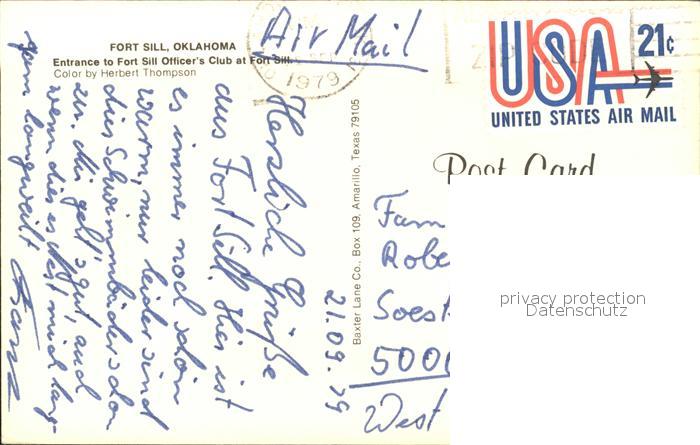 FORT SILL, OKLAHOMA
Entrance to Fort Sill Officer's Club at Fort Sill.
Color by Herbert Thompson
Air Mail
1979
USA 21c
UNITED STATES AIR MAIL
Post Card
Baxter Lane Co., Box 109, Amarillo, Texas 79105
21.09.79
Herzliche Grüße
aus Fort Sill. Hier ist
es immer noch schön
warm, nur leider sind
die Schwimmbäder schon
zu. Mir geht's gut, auch
wenn dies es Nest mich lang-
sam langweilt
Fam
Robe
Soest
5000
West
privacy protection
Datenschutz